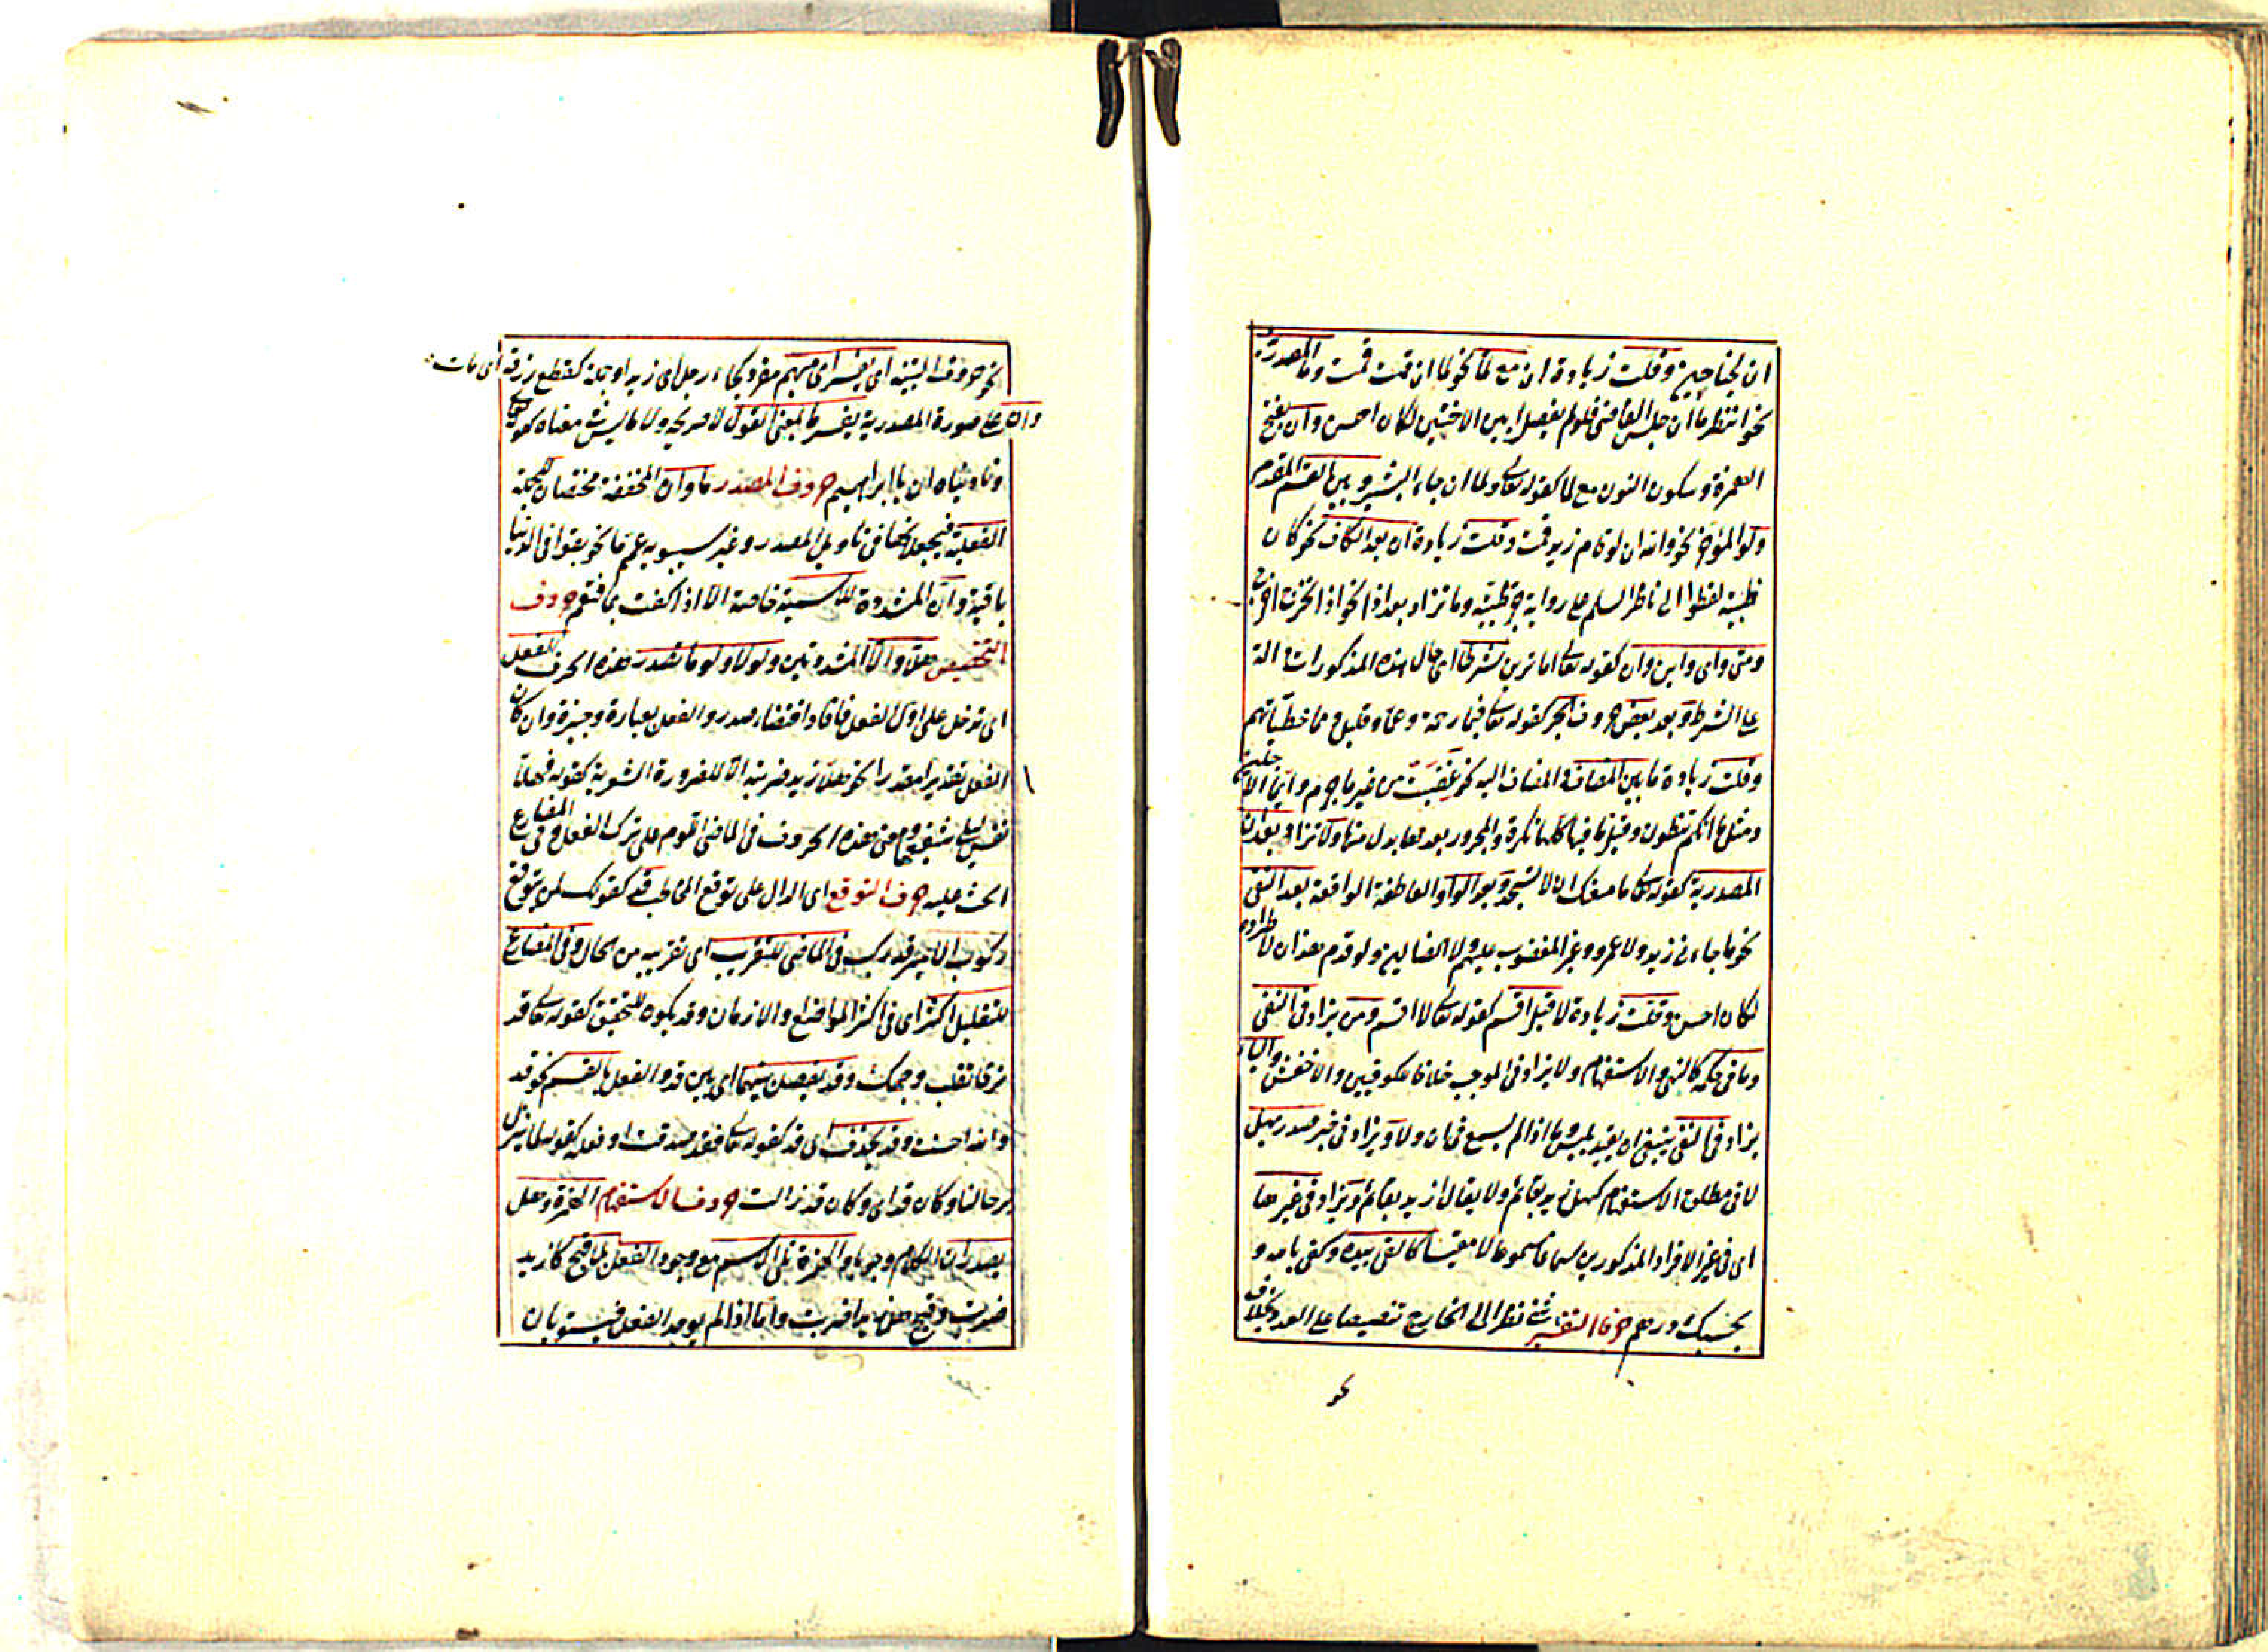 ان لجناحين وقلت زيادة ان مع لما نحو لما ان قمت قمت وما المصدرية
نحو انتظر ما ان جلس القاضى فلو لم يفصل بين الاختين لكان احسن وان بفتح
الهمزة وسكون النون مع لما كقوله تعالى ولما ان جاء البشير وبين القسم المقدم
ولو المؤخر نحو والله ان لو قام زيد قمت وقلت زيادة ان بعد الكاف نحو كان
ظبية تعطوا الى ناظر السلم على رواية جر ظبية وما تزاد بعد اذا نحو اذا ما تخرج اخرج
ومتى واى واين وان كقوله تعالى اما ترين شرطا اى حال هذه المذكورات الة
على الشرط وبعد بعض حروف الجر كقوله تعالى فبما رحمة وعما قليل ومما خطيئاتهم
وقلت زيادة ما بين المضاف والمضاف اليه نحو غضبت من غير ما جرم وايما الاجلين
ومثل ما انكم تنطقون وقيل ما فيها كلها نكرة والمجرور بعدها بدل منها ولا تزاد بعد ان
المصدرية كقوله تعالى ما منعك ان لا تسجد وبعد الواو العاطفة الواقعة بعد النفى
نحو ما جاءنى زيد ولا عمرو وغير المغضوب عليهم ولا الضالين ولو قدم هذان
لكان احسن وقلت زيادة لا قبل اقسم كقوله تعالى لا اقسم ومن يزاد فى النفى
وما فى حكمه كالنهى والاستفهام ولا يزاد فى الموجب خلافا للكوفيين والاخفش والباء
يزاد فى النفى ينبغى ان يقيد بليس وما اذا لم يسمع فى ان ولا ويزاد فى خبر صدر بهل
لا فى مطلق الاستفهام كهل زيد بقائم ولا يقال ازيد بقائم ويزاد فى غيرها
اى فى غير الافراد المذكورين سماعا مسموعا لا مقيسا كالقى بيده وكفى بالله و
بحسبك درهم حرفا التفسير نظرا الى الخارج تنصيصا على العدد بخلاف
نحو
نحو حروف التنبيه اى يفسر اى مبهم مفرد كجاء رجل اى زيد او جملة كقطع رزقه اى مات
وان على صورة المصدرية يفسر ما بمعنى القول لا صريحه ولا ما ليس معناه كقوله تعالى
وناديناه ان يا ابراهيم حروف المصدر ما وان المخففة مختصان للجملة
الفعلية فيجعلانها فى تاويل المصدر وغير سيبويه عمم ما نحو بقوا فى الدنيا
باقية وان المشددة للاسمية خاصة الا اذا كفت بما فتعم حروف
التحضيض هلا والا المشددتين ولولا ولوما تصدر هذه الحرف للفعل
اى تدخل على اول الفعل فافاد اقتضاء صدر والفعل بعبارة وجيزة وان كان
الفعل تقديرا مقدرا نحو هلا زيد ضربته الا للضرورة الشعرية كقوله فهلا
نفس ليلى شفيعها ومعنى هذه الحروف فى الماضى اللوم على ترك الفعل وفى المضارع
الحث عليه حرف التوقع اى الدال على توقع المخاطب قد كقولك لمن يتوقع
ركوب الامير قد ركب فى الماضى للتقريب اى تقريبه من الحال وفى المضارع
للتقليل اكثر اى فى اكثر المواضع والازمان وقد يكون للتحقيق كقوله تعالى قد
نرى تقلب وجهك وقد يفصل بينهما اى بين قد والفعل بالقسم نحو قد
والله احسنت وقد يحذف اى قد كقوله تعالى فقد صدقت او فعله كقوله لما تزل
برحالنا وكان قد اى وكان قد زالت حروف الاستفهام الهمزة وهل
يصدران الكلام وجوبا والهمزة تلى الاسم مع وجود الفعل بلا قبح كازيد
ضربت وقبح هل زيدا ضربت واما اذا لم يوجد الفعل فيستويان